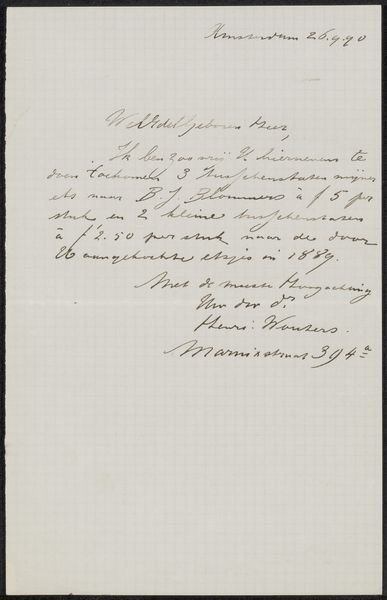 Amsterdam 26.9.90
WelEdelGeboren Heer,
Ik ben zoo vrij U hiernevens te
doen toekomen 3 tusschenstaten mijner
ets naar B. J. Blommers à f 5 per
stuk en 2 kleine tusschenstaten
à f 2.50 per stuk naar de door
U aangekochte etsjes in 1889.
Met de meeste Hoogachting
Uw dw dr
Henri Wouters.
Marnixstraat 394a